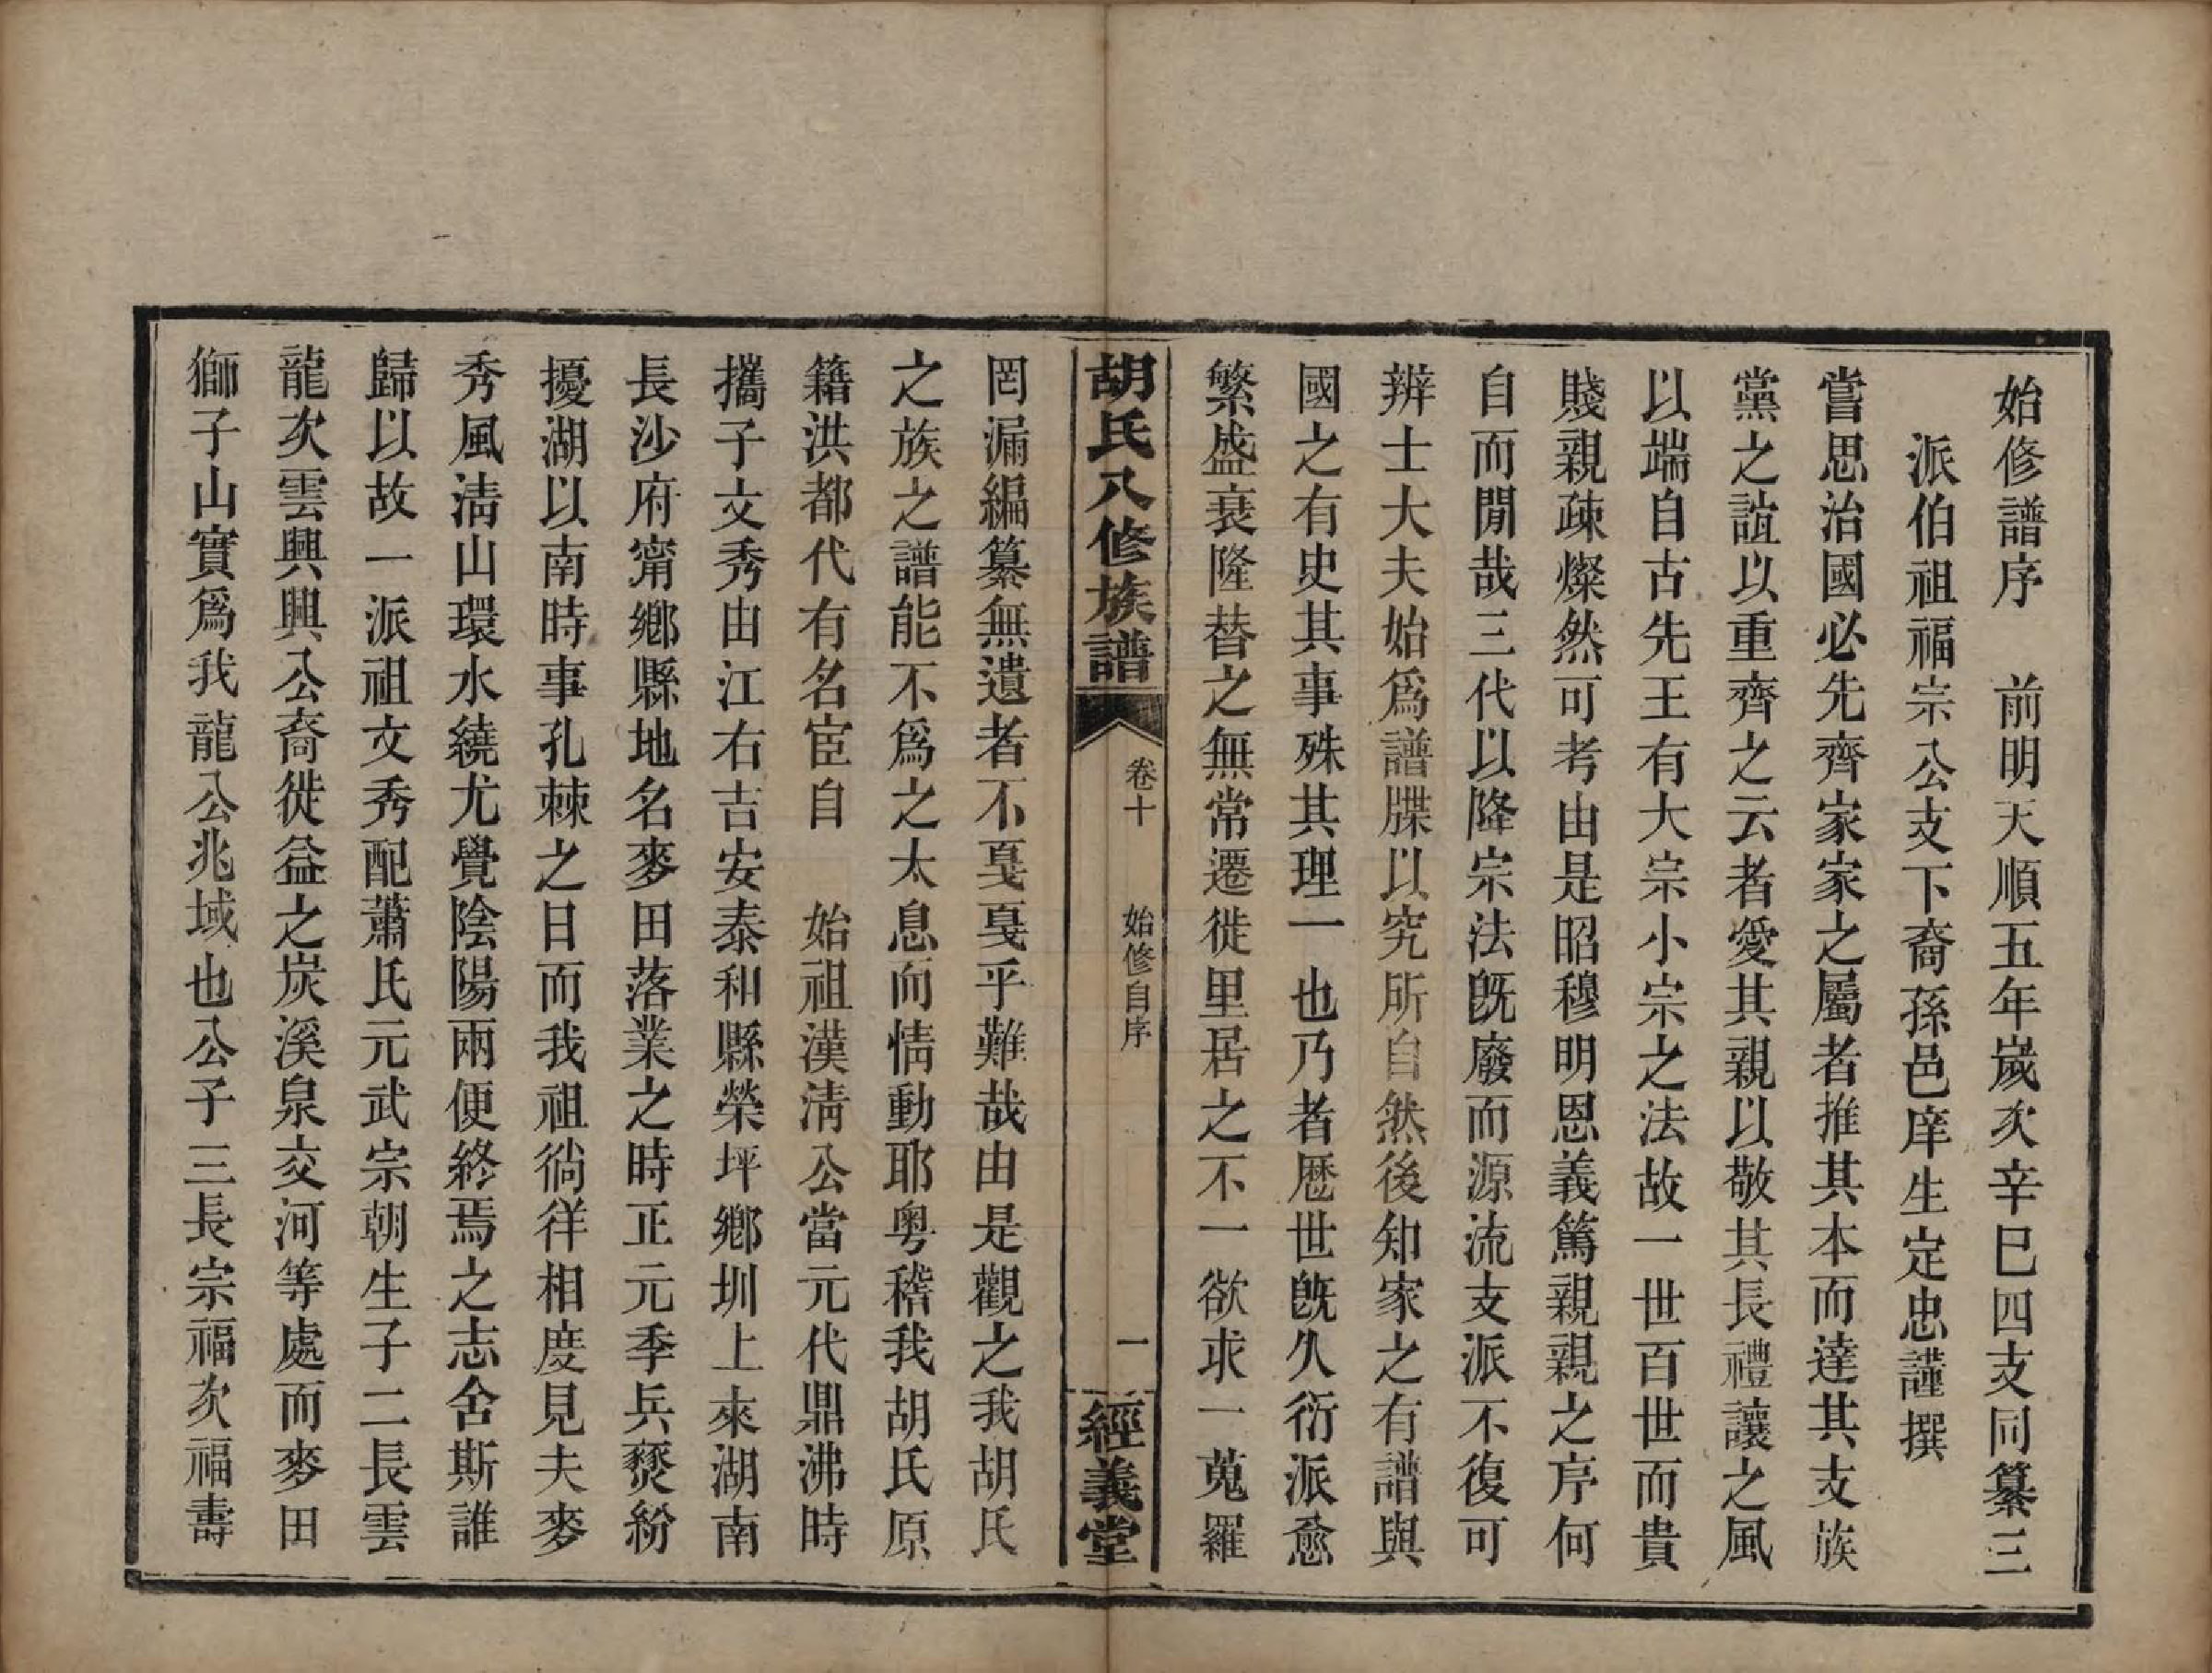 始修譜序　前明天順五年歲次辛巳四支同纂三
派伯祖福宗公支下裔孫邑庠生定忠謹撰
嘗思治國必先齊家家之屬者推其本而達其支族
黨之誼以重齊之云者愛其親以敬其長禮讓之風
以端自古先王有大宗小宗之法故一世百世而貴
賤親疎燦然可考由是昭穆明恩義篤親親之序何
自而閒哉三代以降宗法旣廢而源流支派不復可
辨士大夫始爲譜牒以究所自然後知家之有譜與
國之有史其事殊其理一也乃者歷世旣久衍派愈
繁盛衰隆替之無常遷徙里居之不一欲求一蒐羅
胡氏八修族譜
卷十
始修自序
一
經義堂
罔漏編纂無遺者不戛戛乎難哉由是觀之我胡氏
之族之譜能不爲之太息而情動耶粤稽我胡氏原
籍洪都代有名宦自　始祖漢淸公當元代鼎沸時
攜子文秀由江右吉安泰和縣榮坪鄕圳上來湖南
長沙府甯鄕縣地名麥田落業之時正元季兵燹紛
擾湖以南時事孔棘之日而我祖徜徉相度見夫麥
秀風淸山環水繞尤覺陰陽兩便終焉之志舍斯誰
歸以故一派祖文秀配蕭氏元武宗朝生子二長雲
龍次雲興興公裔徙益之炭溪泉交河等處而麥田
獅子山實爲我龍公兆域也公子三長宗福次福壽